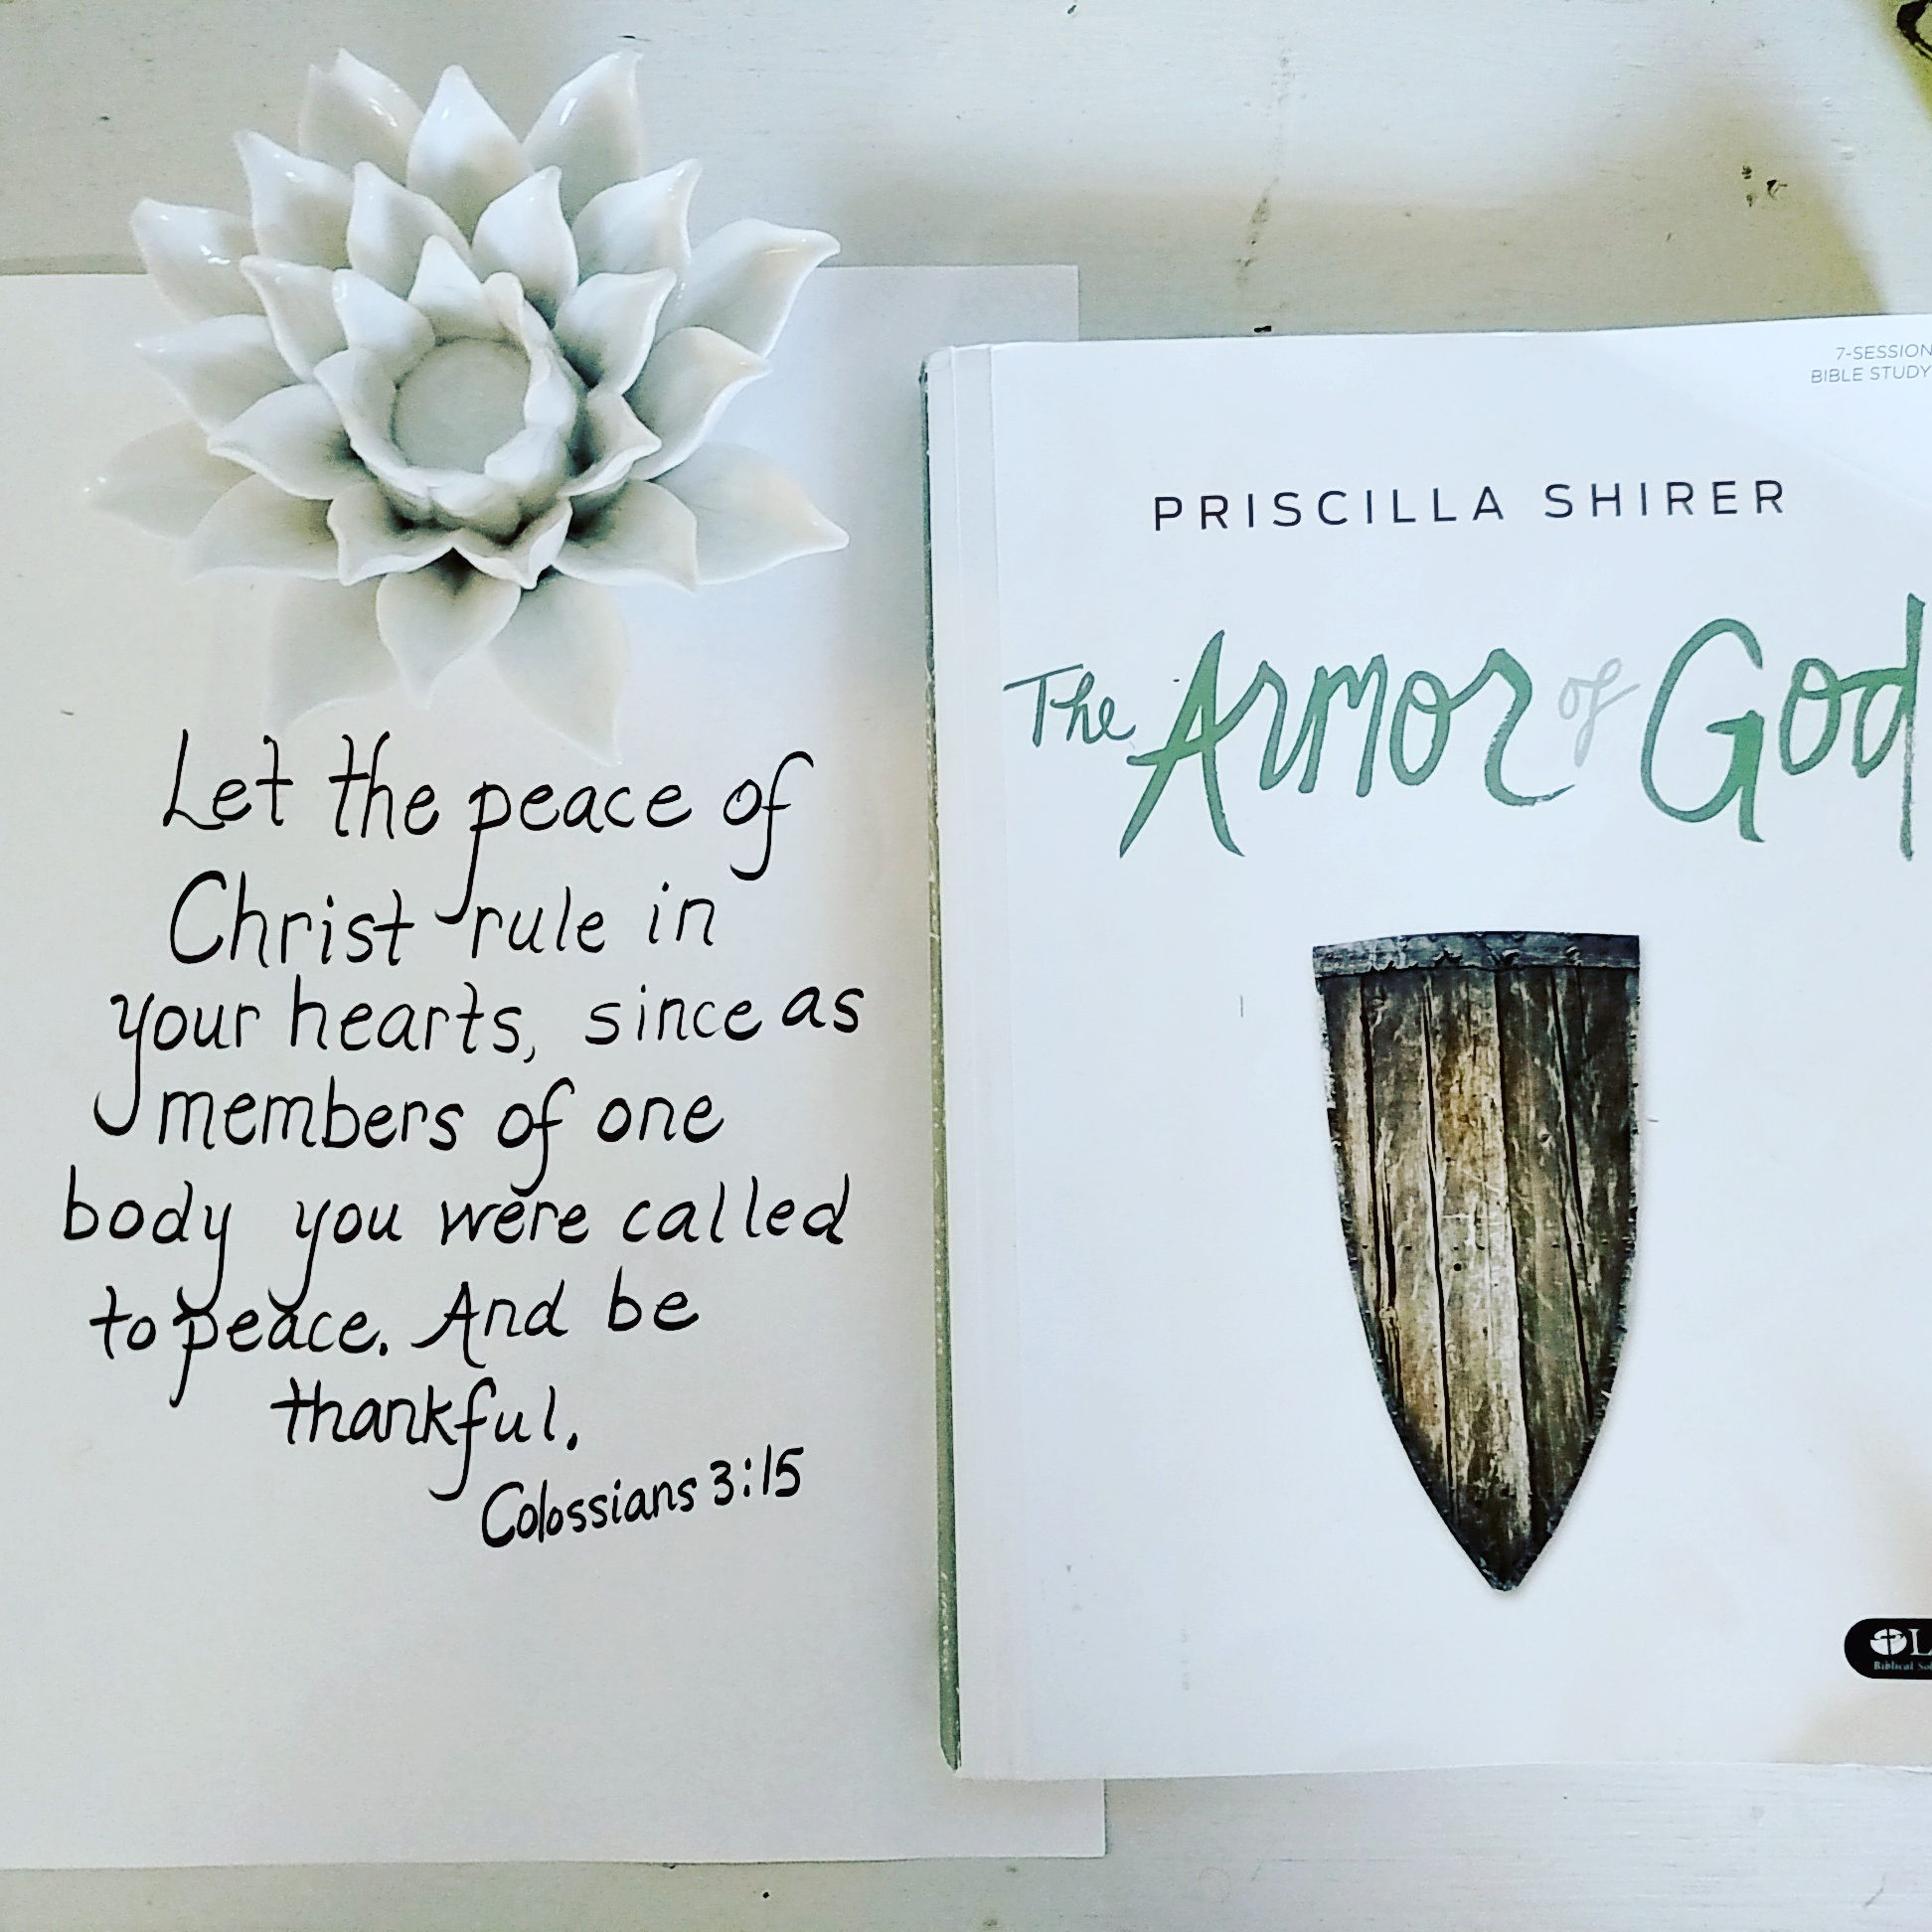 Let the peace of
Christ rule in
your hearts, since as
members of one
body you were called
to peace. And be
thankful.
Colossians 3:15
7-SESSION
BIBLE STUDY
PRISCILLA SHIRER
The Armor of God
Biblical